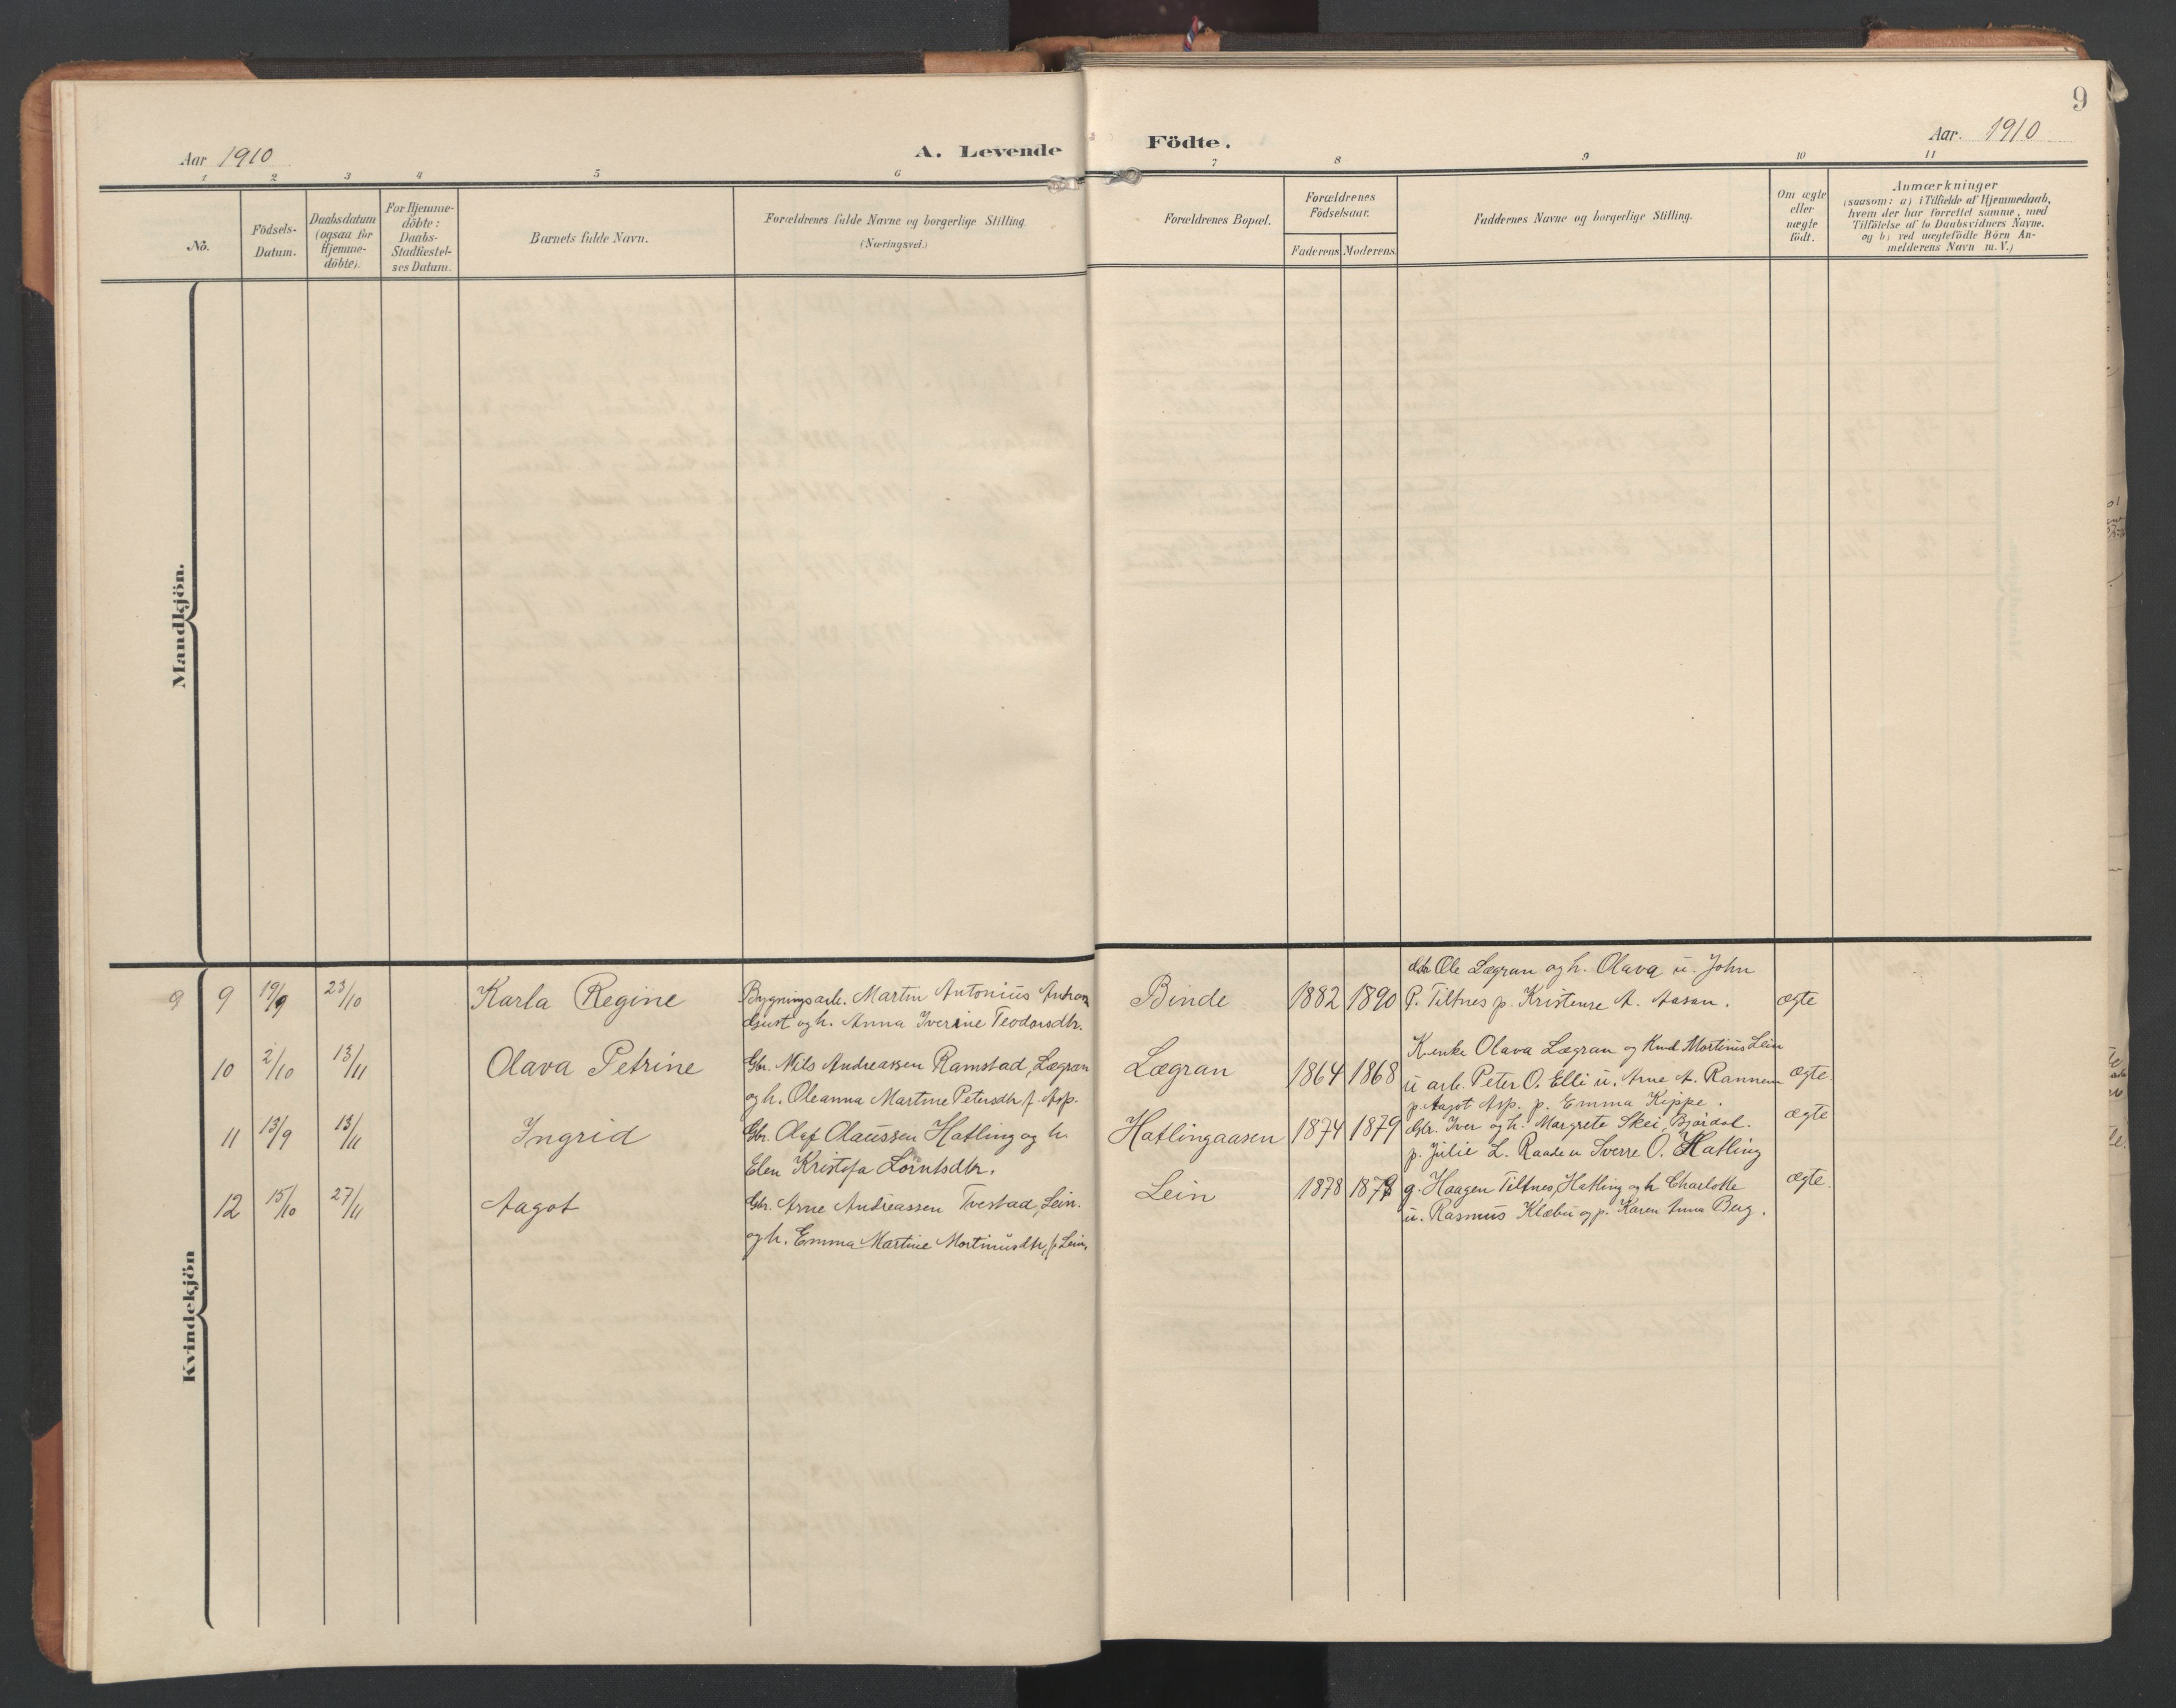 9
Aar 1910
A. Levende
Födte.
Aar. 1910
1 2 3 4 5 6 7 8 9 10 11
No.
Födsels-
Datum.
Daabsdatum
(ogsaa for
Hjemme-
döbte).
For Hjemme-
döbte:
Daabs-
Stadfæstel-
ses Datum.
Barnets fulde Navn.
Forældrenes fulde Navne og borgerlige Stilling.
(Næringsvei.)
Forældrenes Bopæl.
Forældrenes
Födselsaar.
Faderens Moderens.
Faddernes Navne og borgerlige Stilling.
Om ægte
eller
uægte
födt.
Anmærkninger
(saasom: a) i Tilfælde af Hjemmedaab,
hvem der har forrettet samme, med
Tilföielse af to Daabsvidners Navne.
og b) ved uægtefödte Börn An-
melderens Navn m. V.)
Mandkjön.
Kvindekjön
9 9 19/9 23/10 Karla Regine
Bygningsarb. Martin Antonius Anton
Gjust og h. Anna Iverine Teodorsdtr.
Binde 1882 1890
Ole Lægran og h. Olava u. John
P. Tiltnes p. Kristense A. Aasan.
ægte
10 2/10 13/11 Olava Petrine
Gbr. Nils Andreassen Ramstad, Lægran
og h. Oleanna Martine Petersdtr f. Asp.
Lægran 1864 1868
K. enke Olava Lægran og Knud Mortinus Lein
u arb. Peter O. Elli u. Arne A. Rannem
p. Aagot Asp. p. Emma Kippe.
ægte.
11 13/9 13/11 Ingrid
Gbr. Olaf Olaussen Hatling og h.
Elen Kristofa Lorntsdtr.
Hatlingaasen 1874 1879
Gbr. Iver og h. Margrete Skei, Bjørdal.
p. Julie L. Raaden Sverre O. Hatling
ægte
12 15/10 27/11 Aagot
Gbr. Arne Andreassen Tvestad, Lein.
og h. Emma Martine Mortinusdtr, f. Lein.
Lein 1878 1879
g. Haagen Tiltnes, Hatling og h Charlotte
u. Rasmus Klæbu og p. Karen Anna Berg.
ægte.